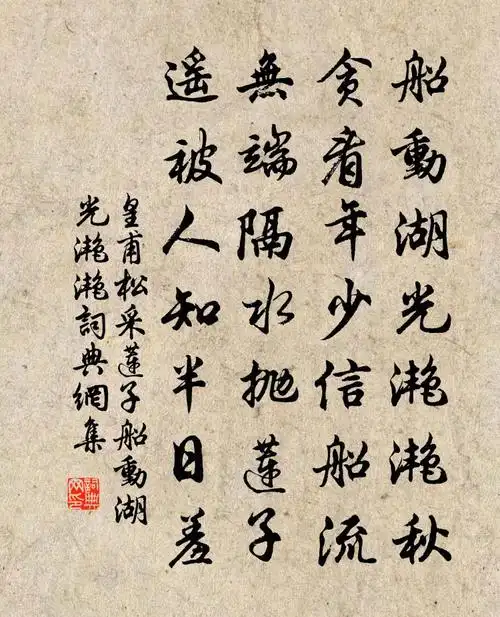 船動湖光灔灔秋
貪看年少信船流
無端隔水拋蓮子
遥被人知半日羞
皇甫松采蓮子船動湖
光灔灔詞典網集